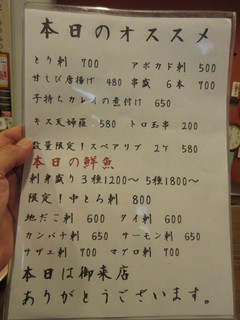 本日のオススメ
とり刺 700 アボカド刺 500
甘えび唐揚げ 480 串盛 6本 700
子持ちカレイの煮付け 650
キス天婦羅 580 トロ玉串 200
数量限定!スペアリブ 2ケ 580
本日の鮮魚
刺身盛り3種1200〜 5種1800〜
限定!中とろ刺 800
地だこ刺 600 タイ刺 600
カンパチ刺 650 サーモン刺 650
サザエ刺 700 マグロ刺 700
本日は御来店
ありがとうございます。